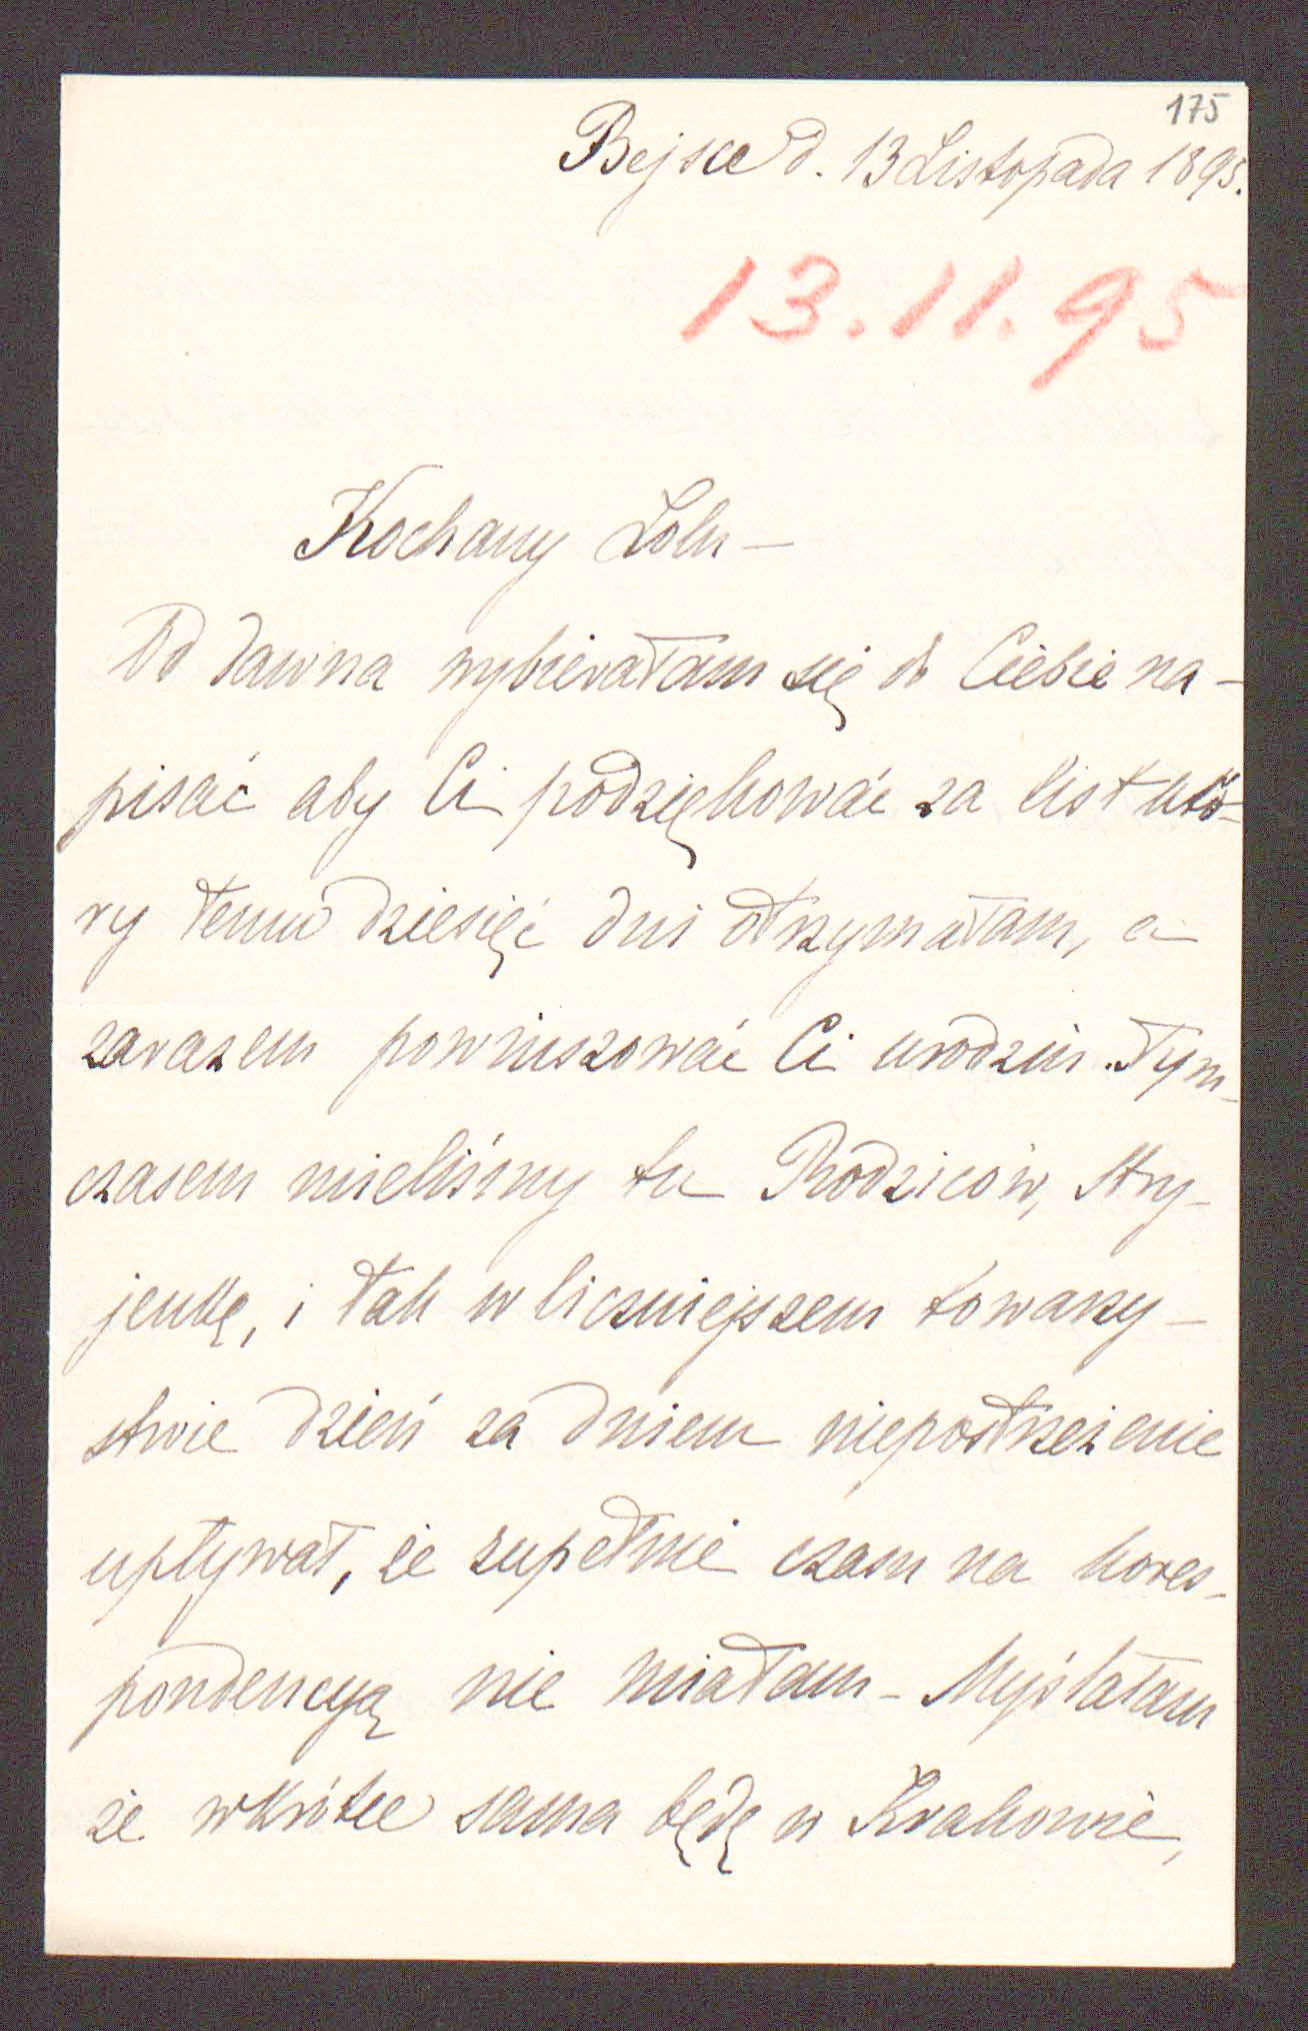 175
Bejsce d. 13 Listopada 1895.
13.11.95
Kochany Lolu –
Od dawna wybierałam się do Ciebie na-
pisać aby Ci podziękować za list któ-
ry temu dziesięć dni otrzymałam, a
zarazem powinszować Ci urodzin. Tym-
czasem mieliśmy tu Rodziców, Stry-
jenkę, i tak w liczniejszem towarzy-
stwie dzień za dniem niepostrzeżenie
upływał, że zupełnie czasu na kores-
pondencyą nie miałam – Myślałam
że wkrótce sama będę w Krakowie,